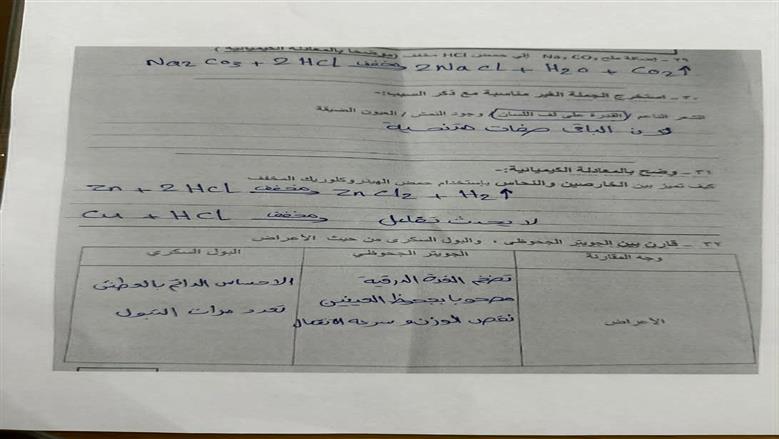 ٢٩ - إضافة ملح Na₂CO₃ إلى حمض HCl مخفف (موضحا بالمعادلة الكيميائية)
Na2 CO3 + 2 HCl مخفف → 2NaCl + H2O + CO2↑
٣٠ - استخرج الجملة الغير مناسبة مع ذكر السبب:-
الشعر الناعم / القدرة على لف اللسان / وجود النمش / العيون الضيقة
الباقى صفات متنحية
٣١ - وضح بالمعادلة الكيميائية:-
كيف تميز بين الخارصين والنحاس بإستخدام حمض الهيدروكلوريك المخفف
Zn + 2 HCl مخفف → ZnCl2 + H2↑
Cu + HCl مخفف → لا يحدث تفاعل
٣٢ - قارن بين الجويتر الجحوظى , والبول السكرى من حيث الأعراض
وجه المقارنة الجويتر الجحوظي البول السكري
الأعراض
تضخم الغدة الدرقية
مصحوبا بجحوظ العينين
نقص الوزن و سرعة الانفعال
الاحساس الدائم بالعطش
تعدد مرات التبول